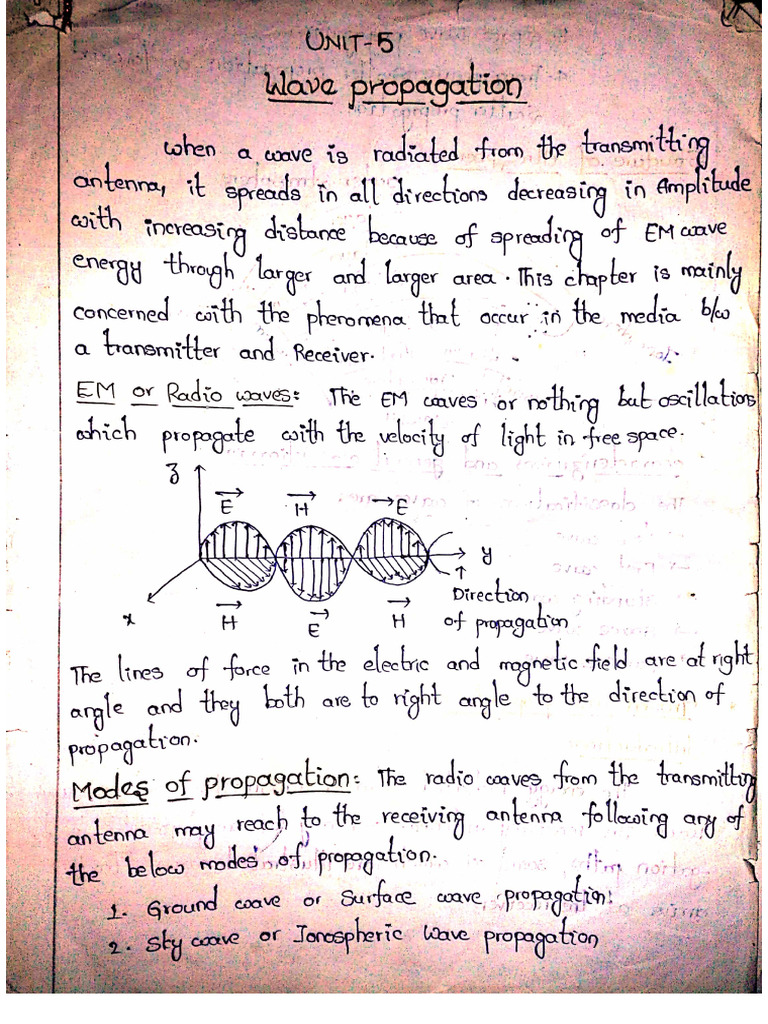 UNIT-5
Wave propagation
When a wave is radiated from the transmitting
antenna, it spreads in all directions decreasing in Amplitude
with increasing distance because of spreading of EM wave
energy through larger and larger area. This chapter is mainly
concerned with the phenomena that occur in the media b/w
a transmitter and Receiver.
EM or Radio waves: The EM waves or nothing but oscillations
which propagate with the velocity of light in free space.
z
E H E
y
x H E H
Direction
of propagation
The lines of force in the electric and magnetic field are at right
angle and they both are to right angle to the direction of
propagation.
Modes of propagation: The radio waves from the transmitting
antenna may reach to the receiving antenna following any of
the below modes of propagation.
1. Ground wave or Surface wave propagation:
2. Sky wave or Ionospheric Wave propagation